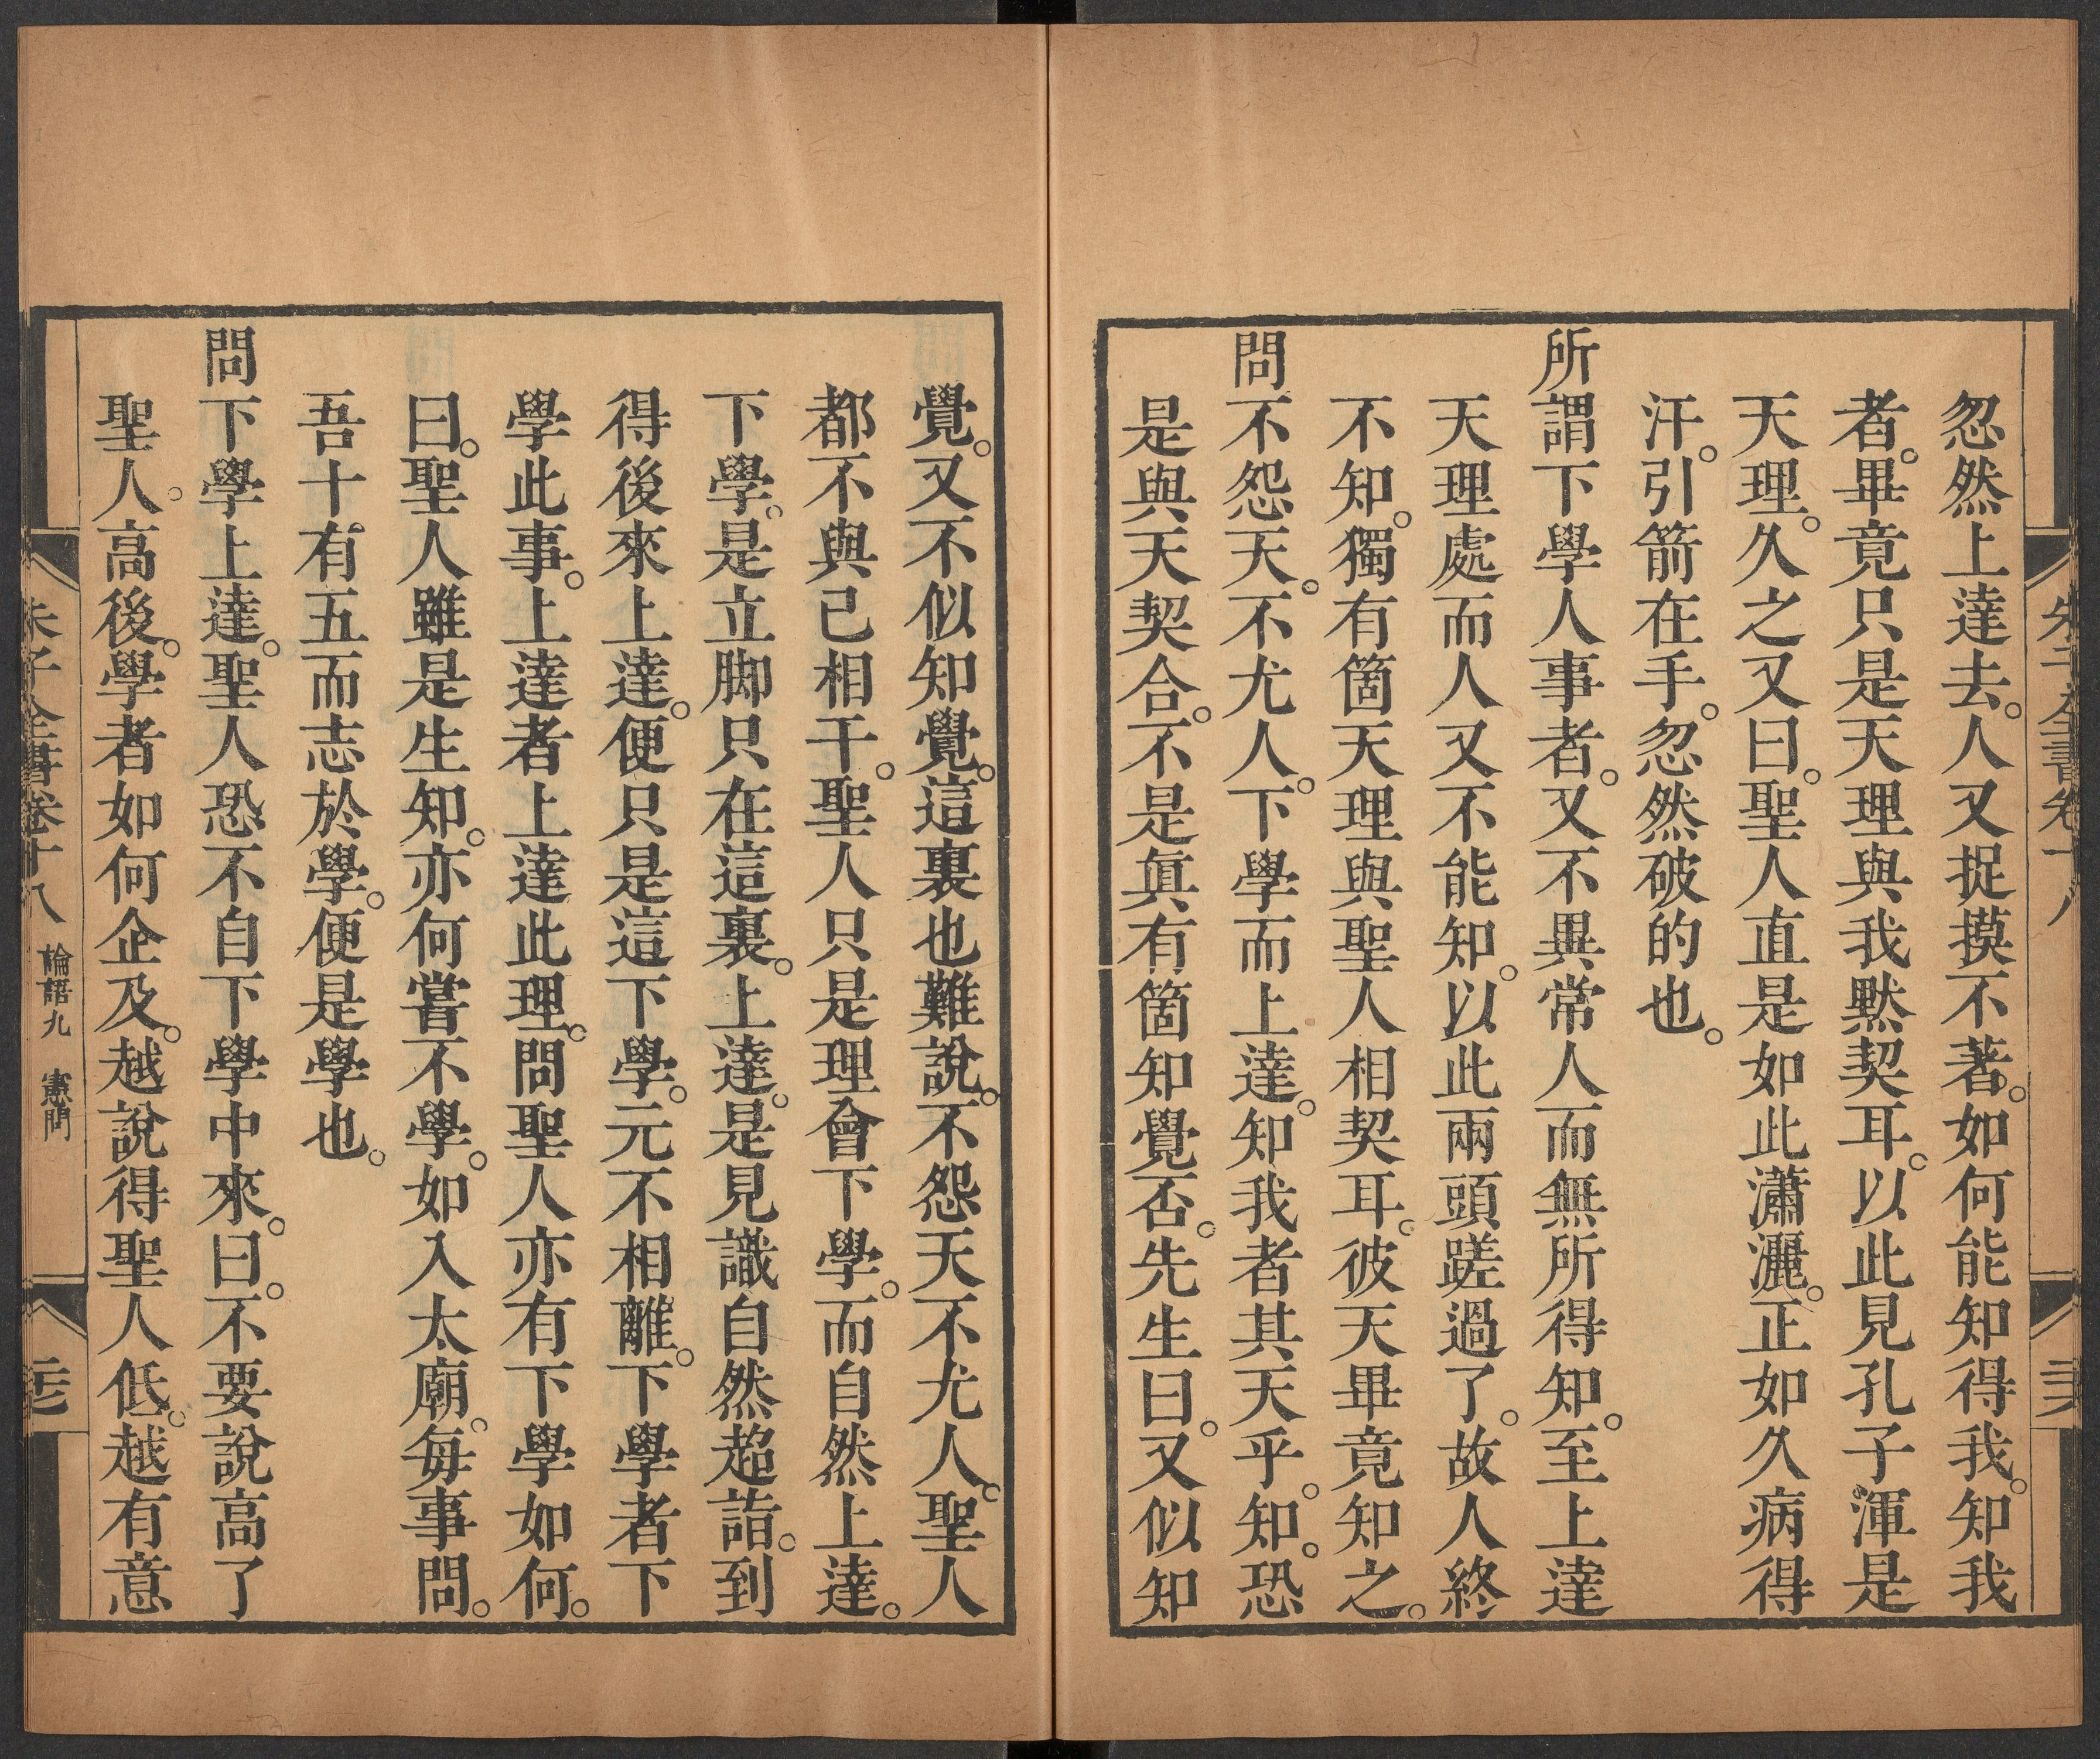 忽然上達去。人又捉摸不著。如何能知得我。知我
者。畢竟只是天理與我默契耳。以此見孔子渾是
天理。久之又曰。聖人直是如此瀟灑。正如久病得
汗。引箭在手。忽然破的也。
所謂下學人事者。又不異常人而無所得知。至上達
天理處而人又不能知。以此兩頭蹉過了。故人終
不知。獨有箇天理與聖人相契耳。彼天畢竟知之。
問不怨天。不尤人。下學而上達。知我者其天乎。知。恐
是與天契合。不是眞有箇知覺否。先生曰。又似知
覺。又不似知覺。這裏也難說。不怨天不尤人。聖人
都不與己相干。聖人只是理會下學。而自然上達。
下學。是立脚只在這裏。上達。是見識自然超詣。到
得後來上達。便只是這下學。元不相離。下學者下
學此事。上達者上達此理。問聖人亦有下學如何。
曰。聖人雖是生知。亦何嘗不學。如入太廟。每事問。
吾十有五而志於學。便是學也。
問下學上達。聖人恐不自下學中來。曰。不要說高了
聖人。高後。學者如何企及。越說得聖人低。越有意
朱子全書卷十八 論語九 憲問